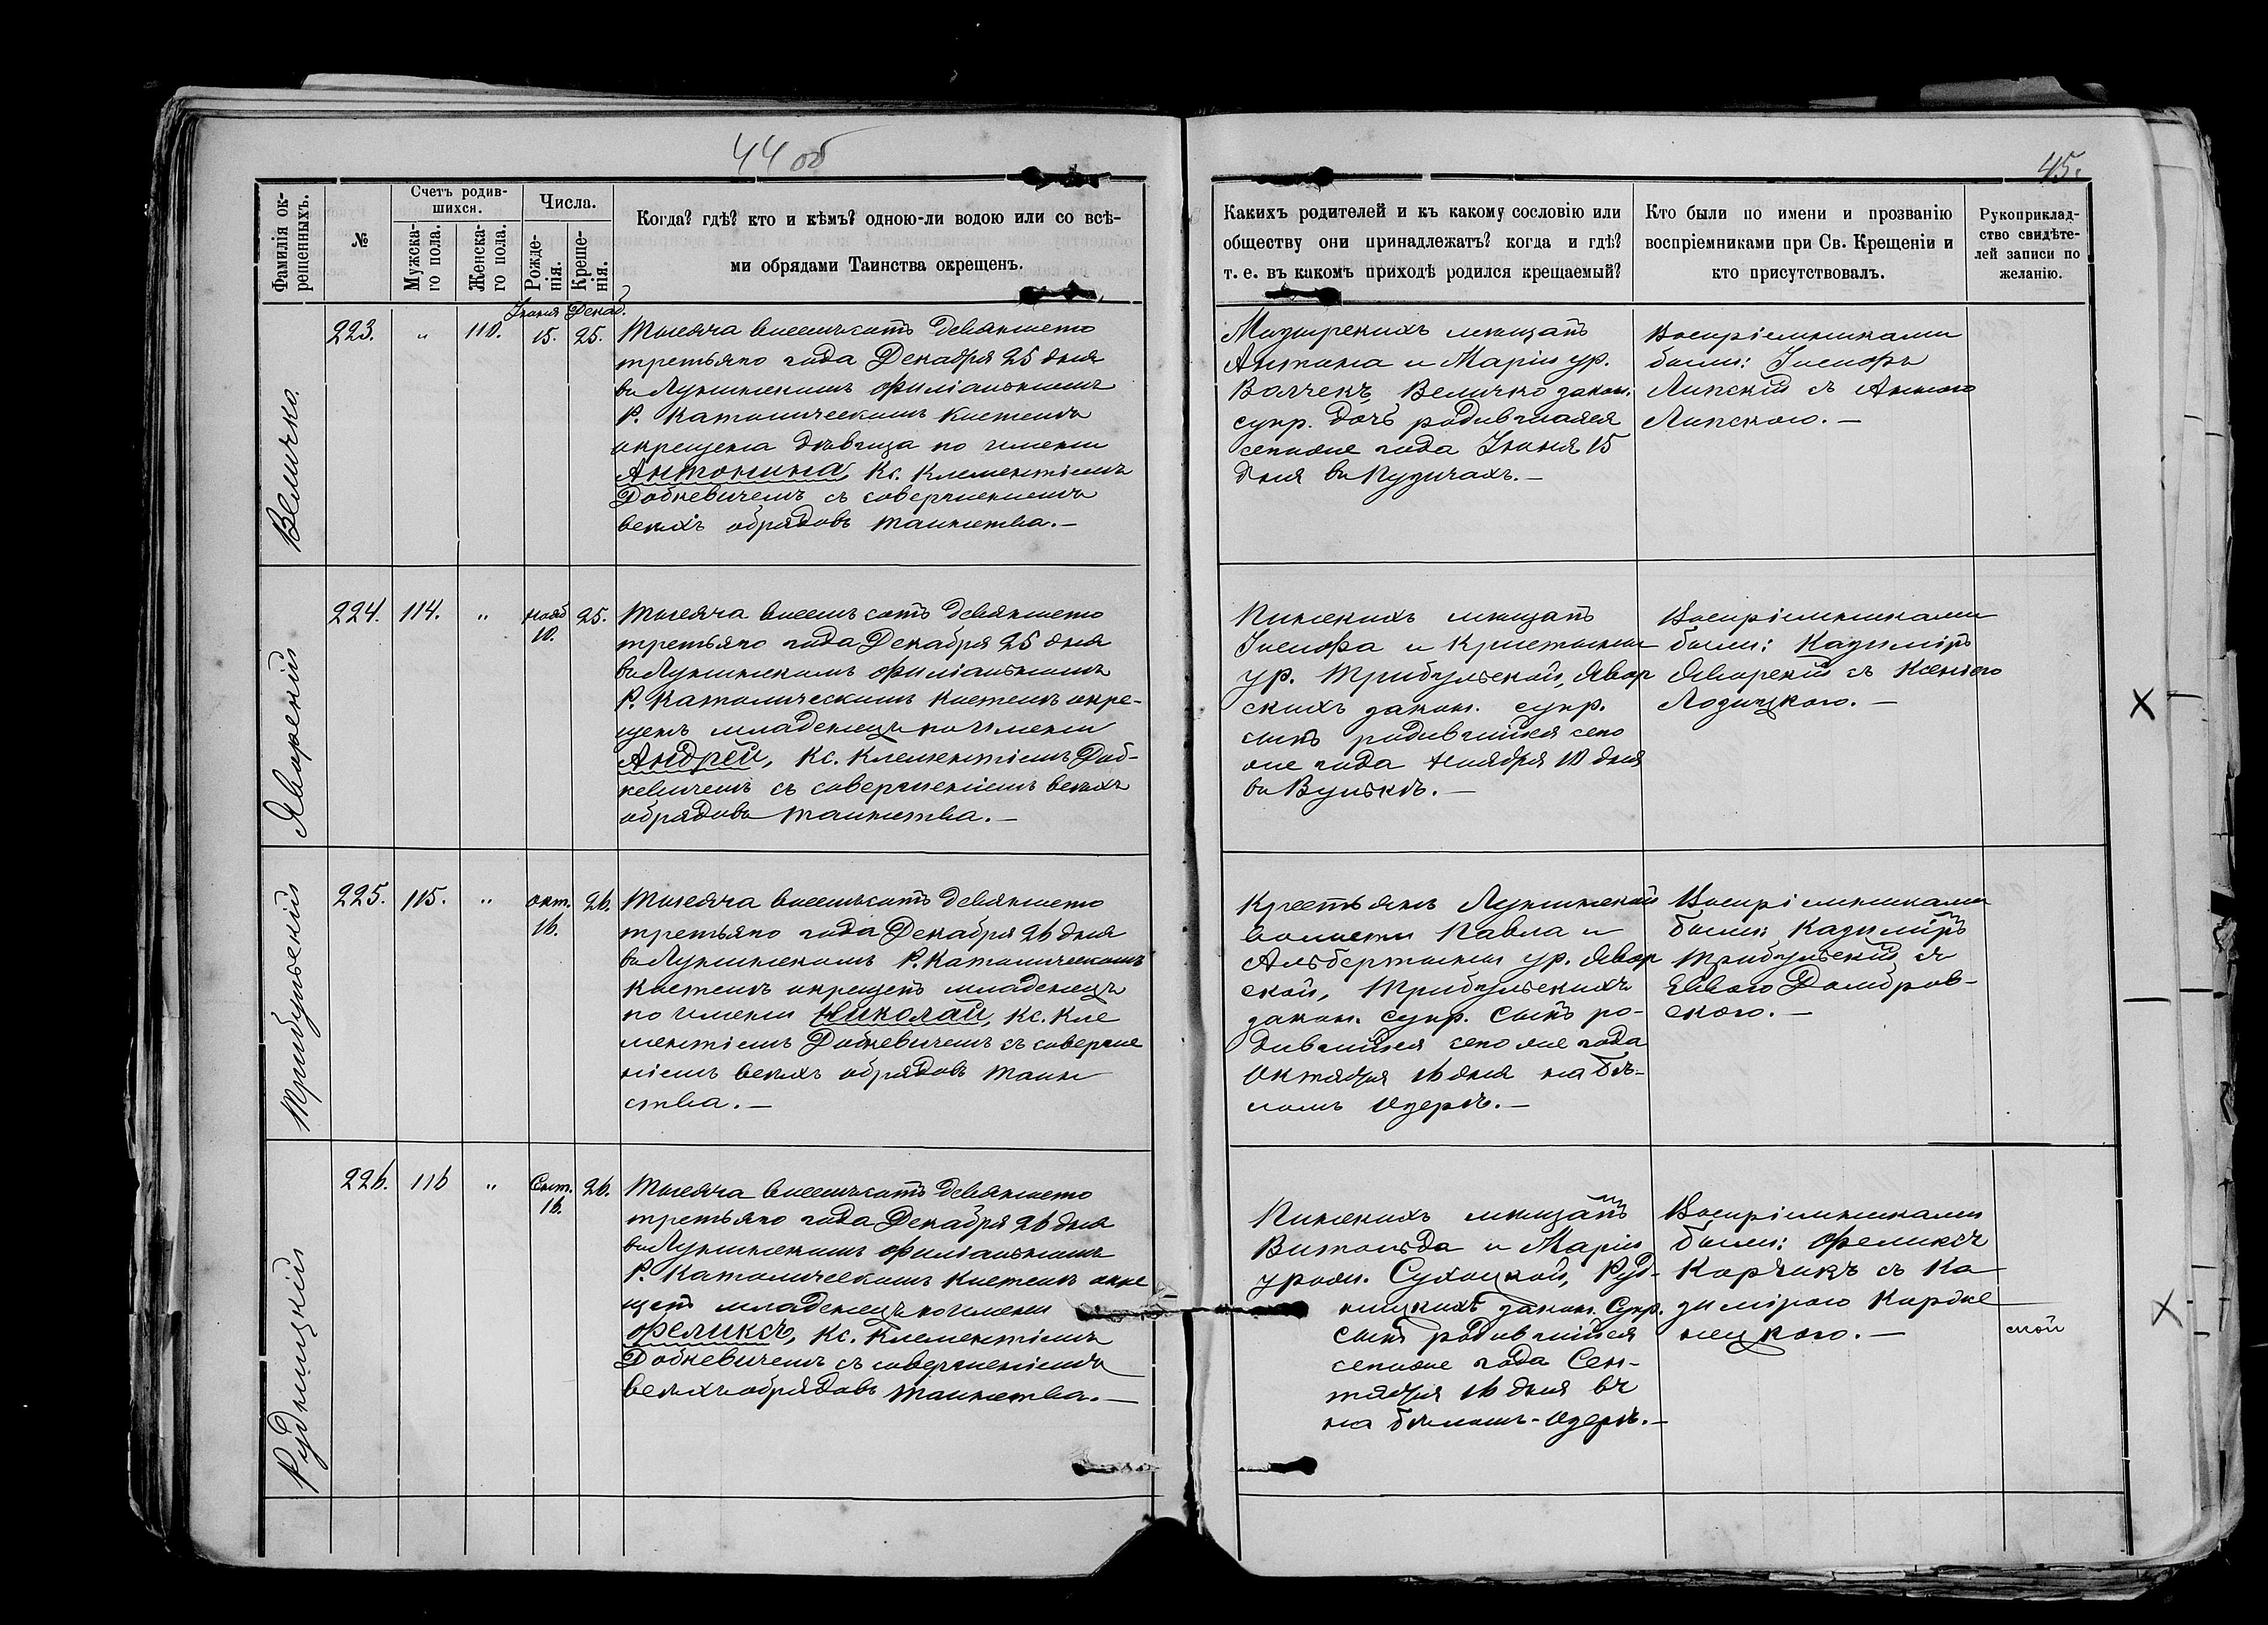 44 об
45.
Фамилія ок-
рещенныхъ.
№
Счетъ родив-
шихся.
Мужска-
го пола.
Женска-
го пола.
Числа.
Рожде-
нія.
Креще-
нія.
Когда? гдѣ? кто и кѣмъ? одною-ли водою или со всѣ-
ми обрядами Таинства окрещенъ.
Какихъ родителей и къ какому сословію или
обществу они принадлежатъ? когда и гдѣ?
т. е. въ какомъ приходѣ родился крещаемый?
Кто были по имени и прозванію
воспріемниками при Св. Крещеніи и
кто присутствовалъ.
Рукоприклад-
ство свидѣте-
лей записи по
желанію.
Величко.
223.
"
110.
Іюня
15.
Декаб.
25.
Тысяча восемьсотъ девяносто
третьяго года Декабря 25 дня
въ Лунинскомъ Филіальномъ
Р. Католическомъ Костелѣ
окрещена дѣвица по имени
Антонина, Кс. Клементіемъ
Добкевичемъ съ совершеніемъ
всѣхъ обрядовъ таинства.—
Мозырскихъ мѣщанъ
Антона и Маріи ур.
Волчекъ, Величко закон.
супр. дочь родившаяся
сего же года Іюня 15
дня въ Пузичахъ.—
Воспріемниками
были: Іосифъ
Липскій съ Анною
Липскою.—
Яворскій
224.
114.
"
нояб
10.
25.
Тысяча восемьсотъ девяносто
третьяго года Декабря 25 дня
въ Лунинскомъ Филіальномъ
Р. Католическомъ Костелѣ окре-
щенъ младенецъ по имени
Андрей, Кс. Клементіемъ Доб-
кевичемъ съ совершеніемъ всѣхъ
обрядовъ таинства.—
Пинскихъ мѣщанъ
Іосифа и Кристины
ур. Трибульской, Явор
скихъ закон. супр.
сынъ родившійся сего
же года Ноября 10 дня
въ Вулькѣ.—
Воспріемниками
были: Казиміръ
Яворскій съ Ксеніею
Лозицкою.—
Трибульскій
225.
115.
"
окт.
16.
26.
Тысяча восемьсотъ девяносто
третьяго года Декабря 26 дня
въ Лунинскомъ Р. Католическомъ
Костелѣ окрещенъ младенецъ
по имени Николай, Кс. Кле
ментіемъ Добкевичемъ съ соверше
ніемъ всѣхъ обрядовъ таин
ства.—
Крестьянъ Лунинской
волости Павла и
Альбертины ур. Явор
ской, Трибульскихъ
закон. супр. сынъ ро-
дившійся сего же года
Октября 16 дня на Бѣ-
ломъ Озерѣ.—
Воспріемниками
были: Казиміръ
Трибульскій съ
Евою Домбров-
скою.—
Рудницкій
226.
116
"
Сент.
16.
26.
Тысяча восемьсотъ девяносто
третьяго года Декабря 26 дня
въ Лунинскомъ Филіальномъ
Р. Католическомъ Костелѣ окре
щенъ младенецъ по имени
Феликсъ, Кс. Клементіемъ
Добкевичемъ съ совершеніемъ
всѣхъ обрядовъ таинства.—
Пинскихъ мѣщанъ
Витольда и Маріи
урожд. Сухоцкой, Руд-
ницкихъ закон. супр.
сынъ родившійся
сего же года Сен-
тября 16 дня въ
на бѣломъ-Озерѣ.—
Воспріемниками
были: Феликсъ
Корѣикъ съ Ка
зимірою Корже
нецкою.—
ской